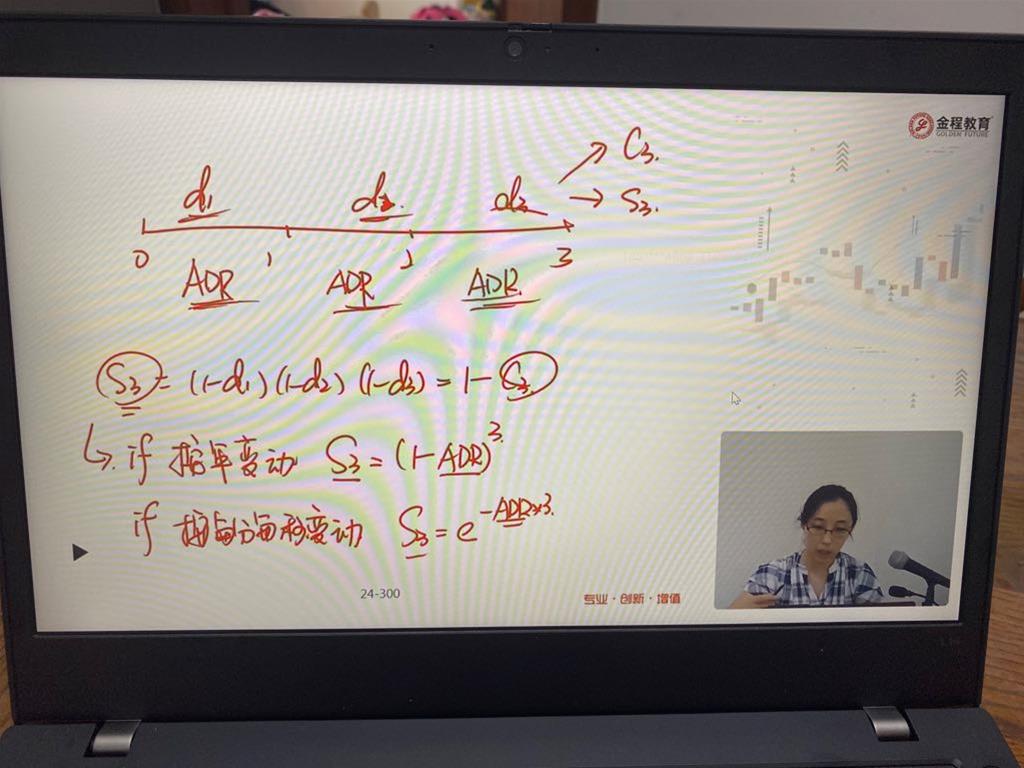 金程教育
GOLDEN FUTURE
C3.
d1 d2. d3 S3.
0 1 2 3
ADR ADR ADR.
S3 = (1-d1)(1-d2)(1-d3) = 1 - C3.
if 按年变动 S3 = (1-ADR)^3.
if 按每分每秒变动 S3 = e^-ADR×3.
24-300
专业·创新·增值